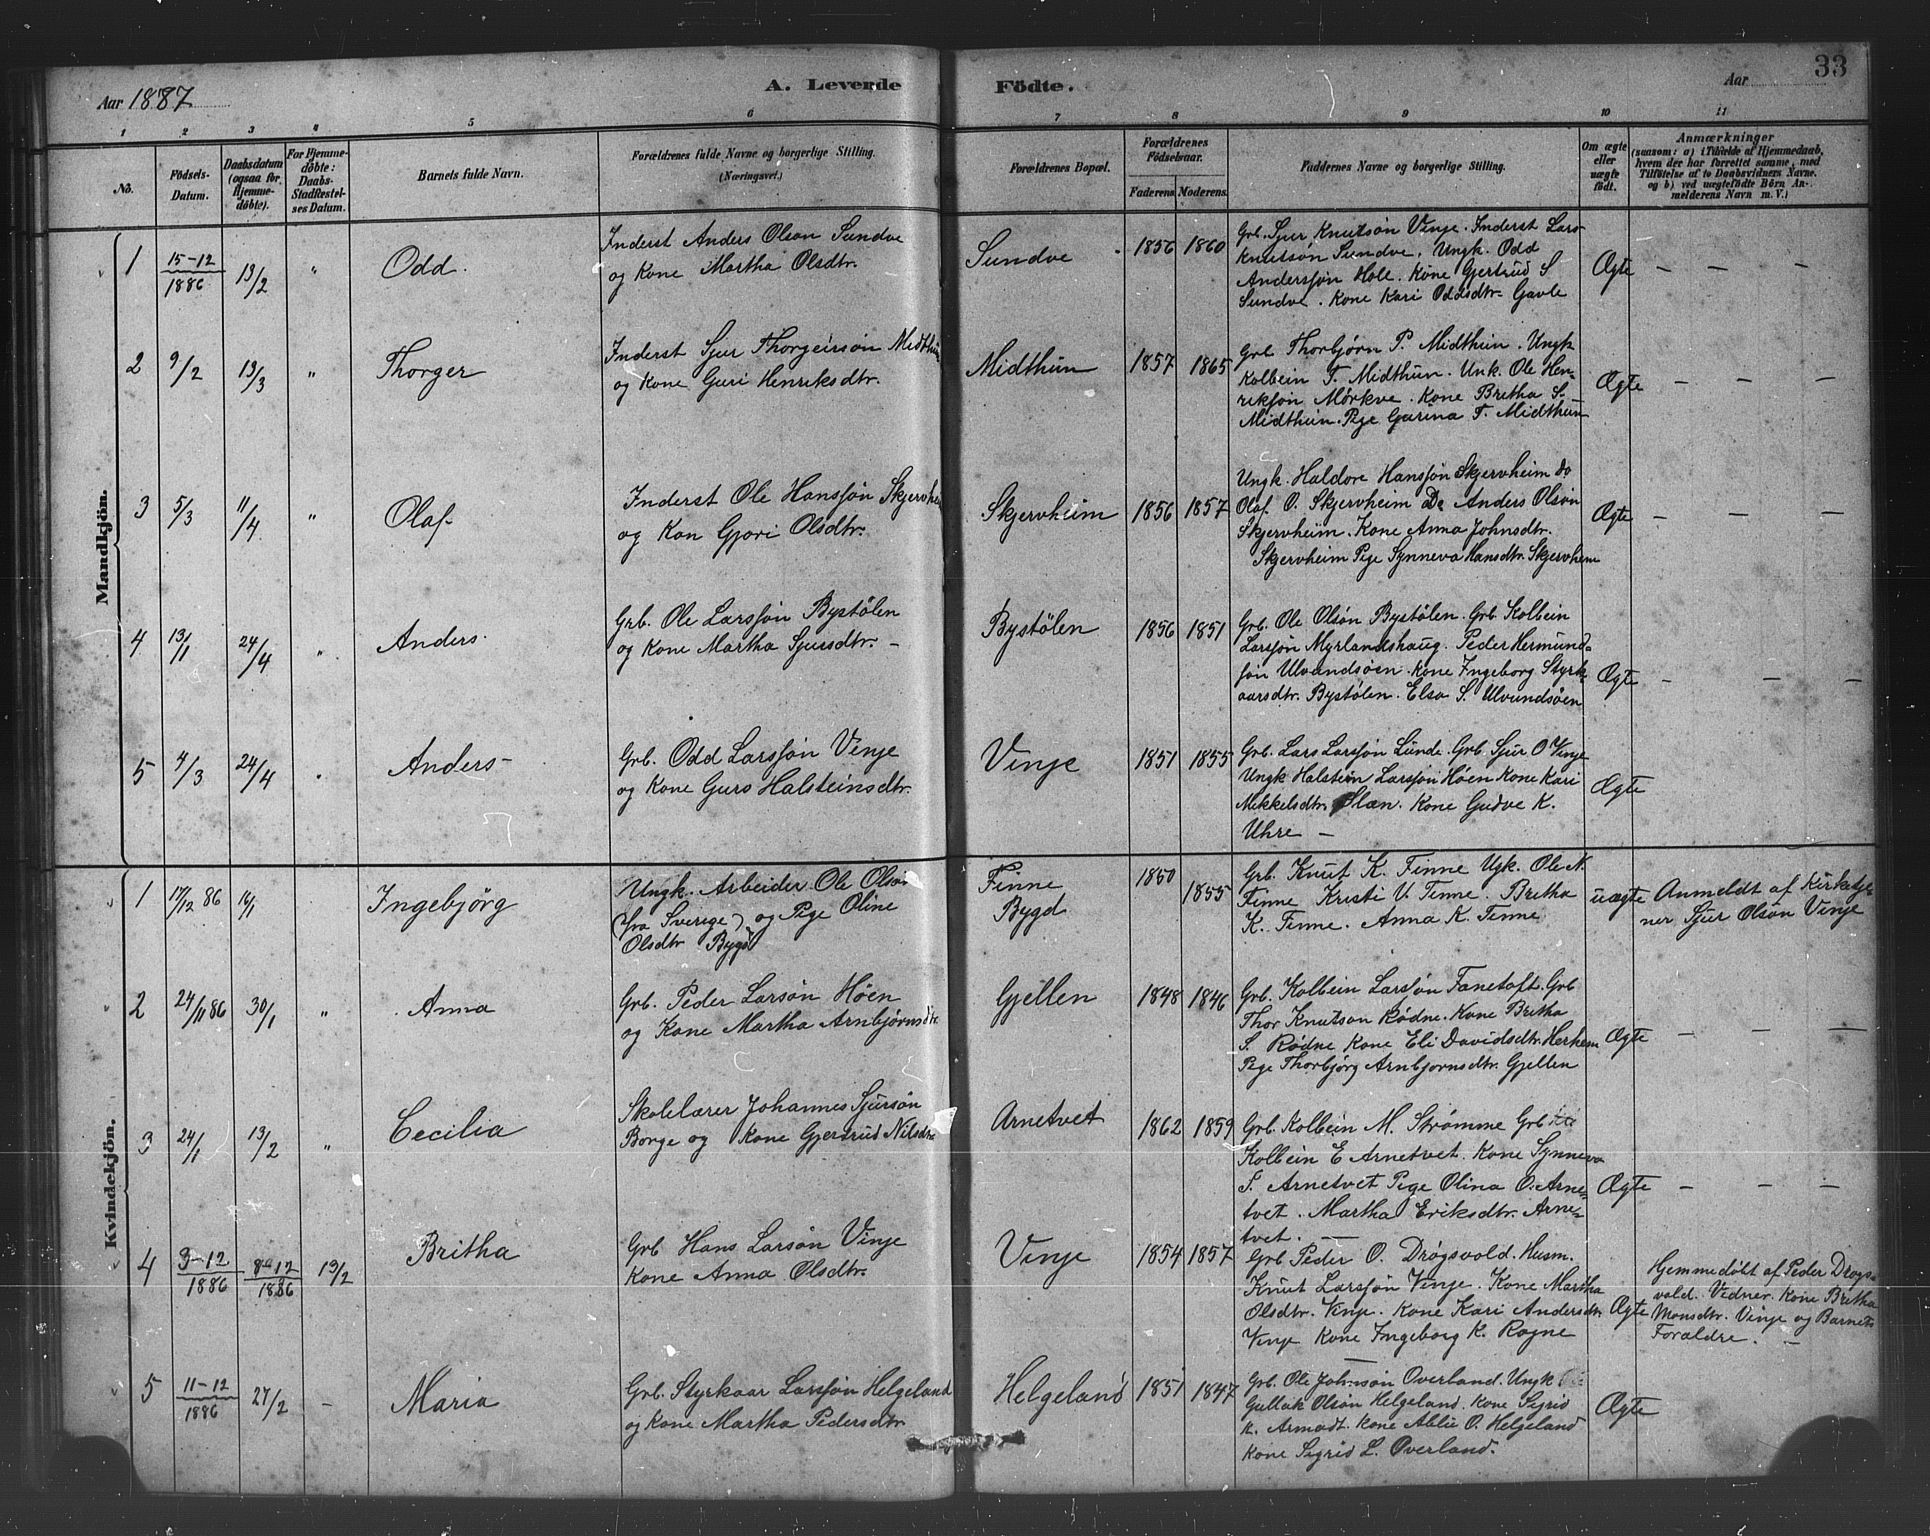 33
Aar 1887
A. Levende
Födte.
Aar
1 2 3 4 5 6 7 8 9 10 11
No.
Födsels-
Datum.
Daabsdatum
(ogsaa for
Hjemme-
döbte).
For Hjemme-
döbte:
Daabs-
Stadfæstel-
ses Datum.
Barnets fulde Navn.
Forældrenes fulde Navne og borgerlige Stilling.
(Næringsvei.)
Forældrenes Bopæl.
Forældrenes
Födselsaar.
Faderens. Moderens.
Faddernes Navne og borgerlige Stilling.
Om ægte
eller
uægte
födt.
Anmærkninger
(saasom: a) i Tilfælde af Hjemmedaab,
hvem der har forrettet samme, med
Tilföielse af to Daabsvidners Navne,
og b) ved uægtefödte Börn An-
melderens Navn m. V.)
Mandkjön.
1 15-12 1886 13/2 " Odd.
Inderst Anders Olson Sundve
og Kone Martha Olsdtr.
Sundve 1856 1860
Grb. Sjur Knutsön Vinje. Inderst Lars
Knutsön Sundve. Ungk. Odd
Andersjön Hole. Kone Gjertrud S
Sundve. Kone Kari Oddsdtr. Gavle
Ægte — — —
2 9/2 13/3 " Thorger
Inderst Sjur Thorgeirsön Midthun
og Kone Guri Henriksdtr.
Midthun 1857 1865
Grb. Thorbjørn P. Midthun. Ungk
Kolbein T. Midthun. Unk. Ole Hen-
rikjön Mørkve. Kone Britha S.
Midthun. Pige Gurina T. Midthun
Ægte — — —
3 5/3 11/4 " Olaf
Inderst Ole Hansjön Skjervheim
og Kon Gjori Olsdtr.
Skjervheim 1856 1857
Ungk. Haldore Hansjön Skjervheim do
Olaf O. Skjervheim Do Anders Olsön
Skjervheim. Kone Anna Johnsdtr.
Skjervheim Pige Synneva Hansdtr. Skjervhem
Ægte — — —
4 13/1 24/4 " Anders.
Grb. Ole Larsjön Bystölen
og Kone Martha Sjursdtr. -
Bystölen 1856 1851
Grb. Ole Olsön Bystölen. Grb. Kolbein
Larsjön Myrlandshaug. Peder Hermund-
jön Ulvundsöen. Kone Ingeborg Styrk-
aarsdtr. Bystölen. Elsa S. Ulvundsöen
Ægte — — —
5 4/3 24/4 " Anders-
Grb. Odd Larsjön Vinje
og Kone Guro Halsteinsdtr.
Vinje 1851 1855
Grb. Lars Larsjön Lunde. Grb. Sjur O Vinje
Ungk Halstein Larsjön Höen Kone Kari
Mikkelsdtr. Slæn. Kone Gudve K.
Uhre —
Ægte
Kvindekjön.
1 17/12 86 16/1 Ingebjörg
Ungk. Arbeider Ole Olson
(fra Sverige) og Pige Oline
Olsdtr Bygd
Finne
Bygd
1850 1855
Grb. Knut K. Finne Ugk. Ole N.
Finne Kristi V. Finne. Britha
K. Finne. Anna K. Finne
uægte
Anmeldt af Kirketje-
ner Sjur Olsön Vinje
2 24/11 86 30/1 " Anna
Grb. Peder Larsön Höen
og Kone Martha Arnbjörnsdtr
Gjellen 1848 1846
Grb. Kolbein Larsjön Fanetoft. Grb
Thor Knutson Rødne. Kone Britha
S. Rødne Kone Eli Davidsdtr. Herhem
Pige Thorbjörg Arnbjornsdtr. Gjellen
Ægte — — —
3 24/1 13/2 " Cecilia
Skolelærer Johannes Sjursön
Borge og Kone Gjertrud Nilsdtr
Arnetvet 1862 1859
Grb. Kolbein M. Strømme Grb
Kolbein E Arnetvet. Kone Synneva
S. Arnetvet Pige Olina O. Arne-
tvet. Martha Eriksdtr. Arne-
tvet. —
Ægte — — —
4 3-12 1886 8-12 1886 13/2 Britha
Grb Hans Larsön Vinje
Kone Anna Olsdtr.
Vinje 1854 1857
Grb Peder O. Drøgsvold. Husm.
Knut Larsjön Vinje. Kone Martha
Olsdtr. Vinje. Kone Kari Andersdtr.
Vinje Kone Ingeborg K. Rogne
Ægte
Hjemmedöbt af Peder Drøgs-
vold. Vidner. Kone Britha
Monsdtr. Vinje og Barnets
Foraldre. —
5 11-12 1886 27/2 - Maria
Grb. Styrkaar Larsjön Helgeland
og Kone Martha Pedersdtr
Helgeland 1851 1847
Grb. Ole Johnsön Overland. Ungk
Gullak Olsön Helgeland. Kone Sigrid
K. Armodt. Kone Ablu O. Helgeland
Kone Sigrid L. Overland.
Ægte